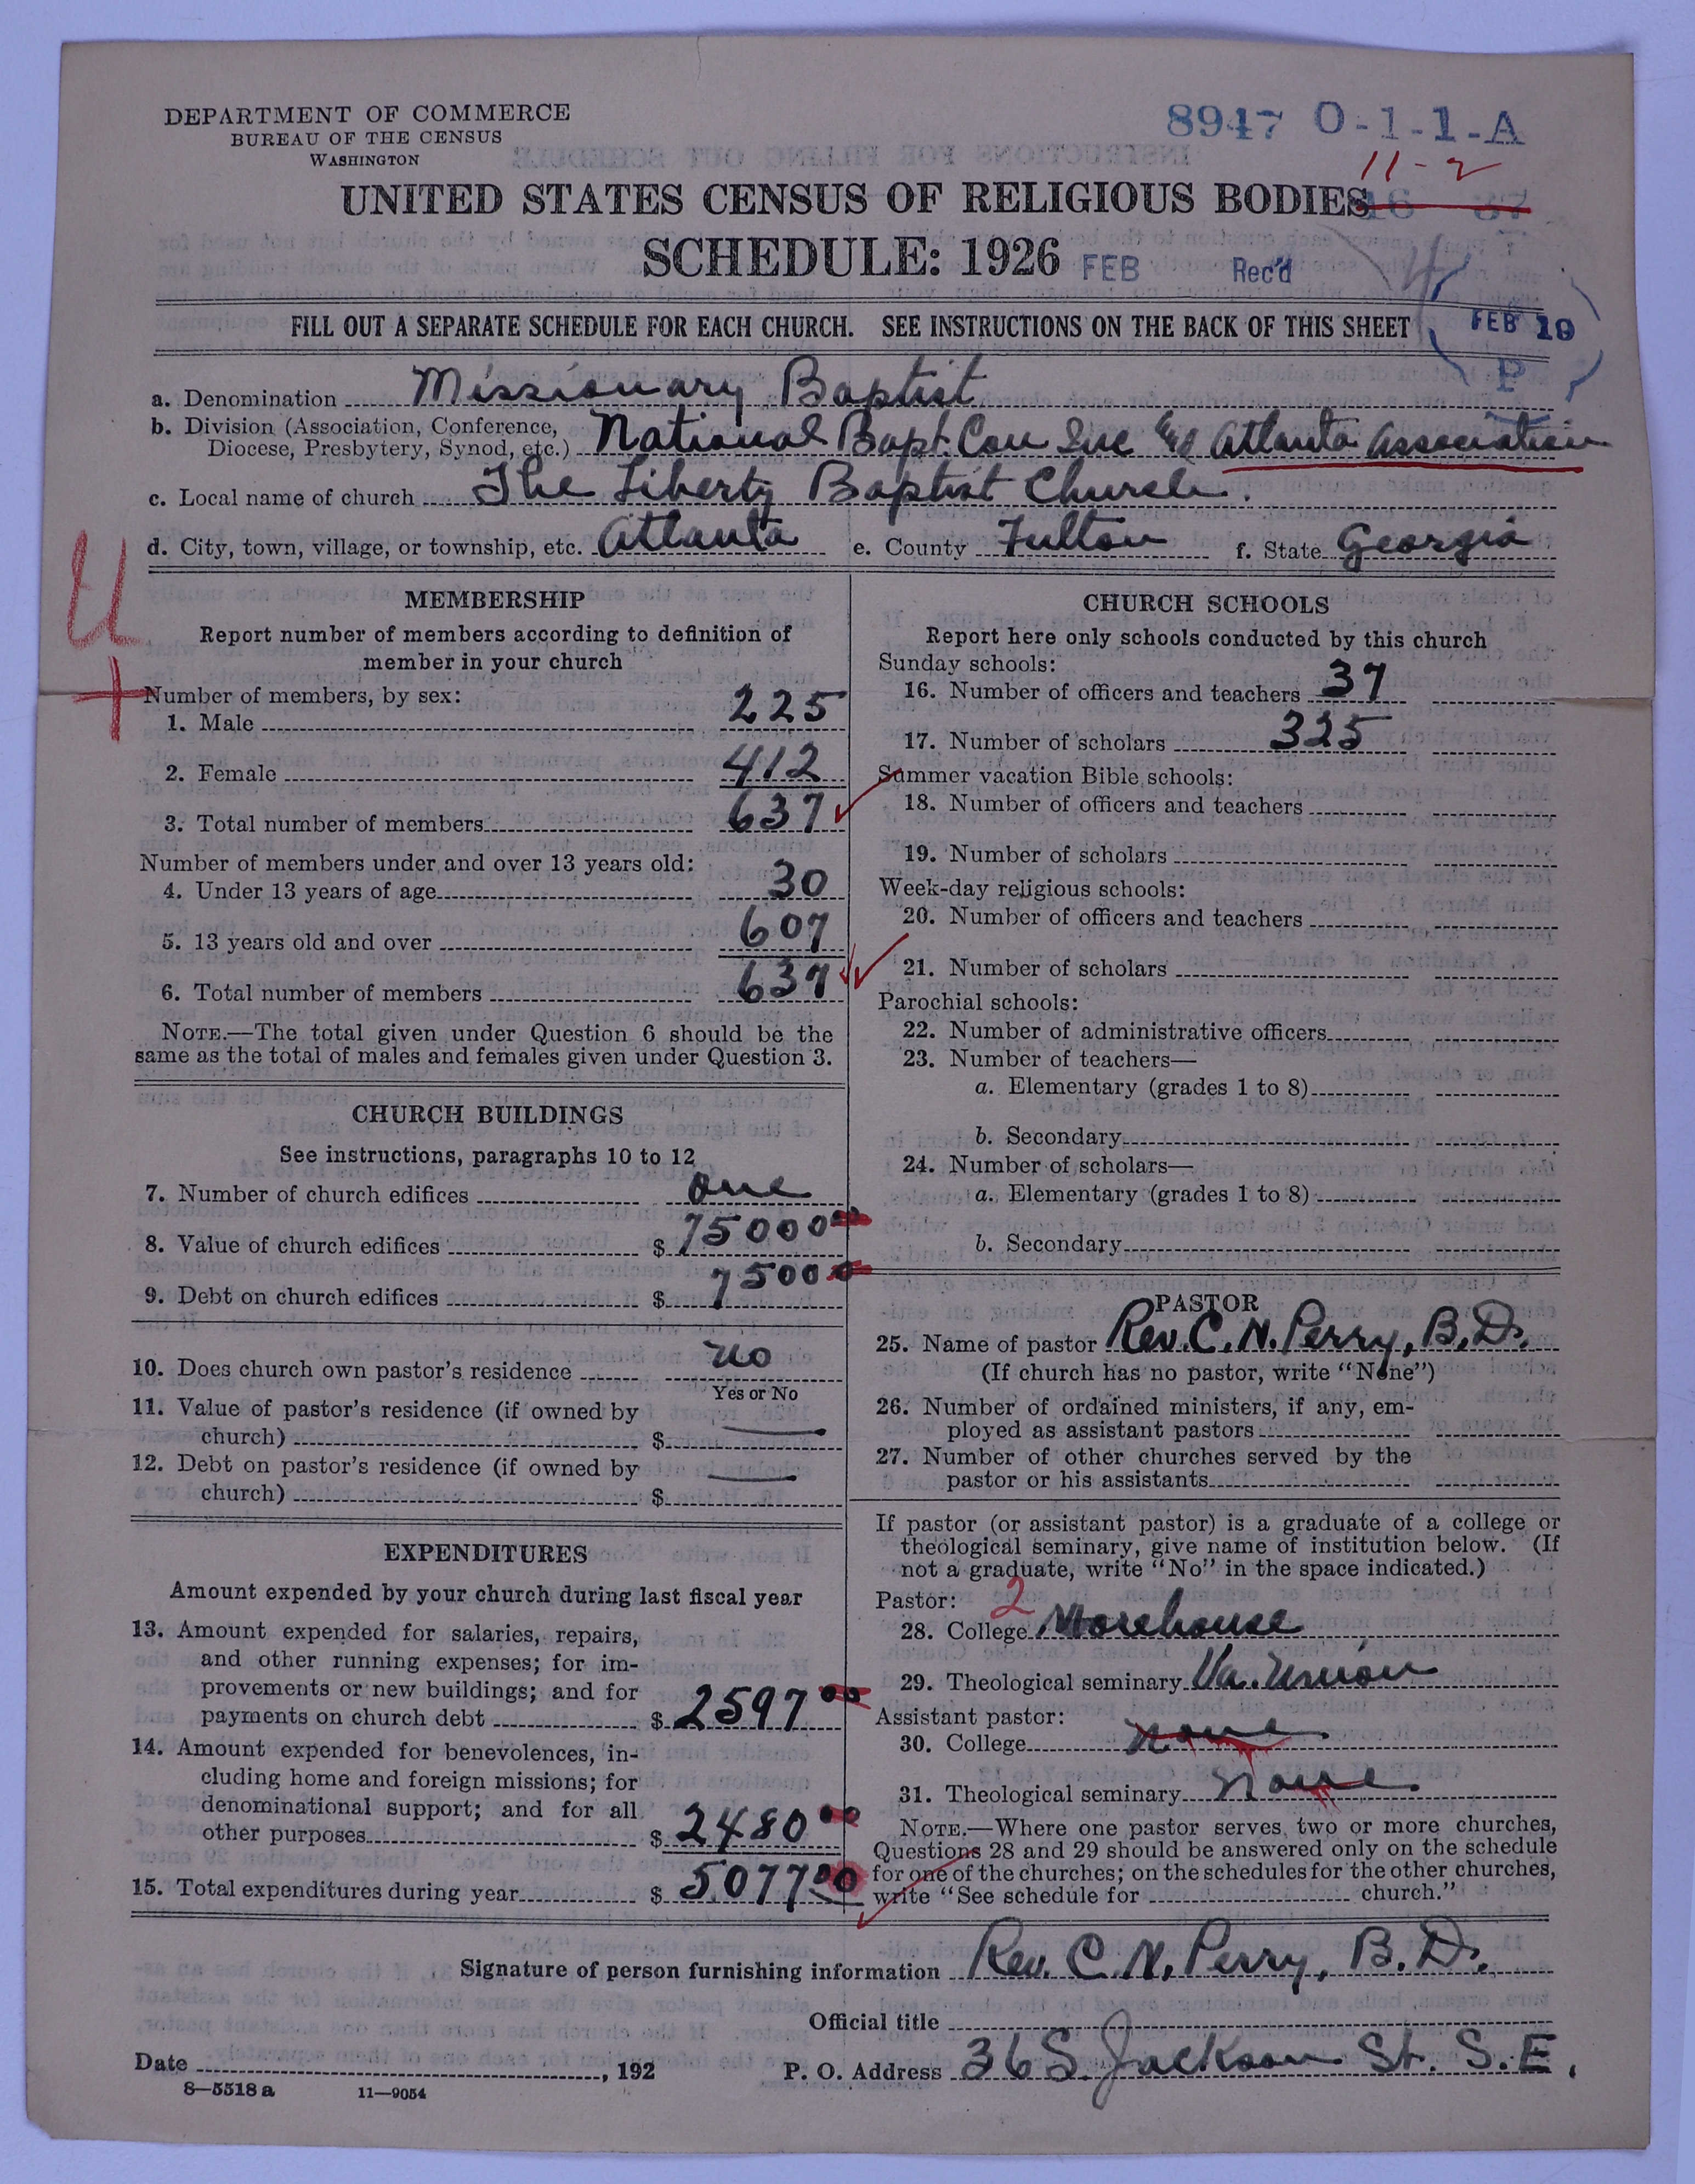 DEPARTMENT OF COMMERCE
BUREAU OF THE CENSUS
WASHINGTON
8947 O-1-1-A
11-2
UNITED STATES CENSUS OF RELIGIOUS BODIES
16 37
SCHEDULE: 1926
FEB Rec'd
FILL OUT A SEPARATE SCHEDULE FOR EACH CHURCH. SEE INSTRUCTIONS ON THE BACK OF THIS SHEET
FEB 19
P
a. Denomination Missionary Baptist
b. Division (Association, Conference, Diocese, Presbytery, Synod, etc.) National Bapt. Con Inc Atlanta Association
c. Local name of church The Liberty Baptist Church.
d. City, town, village, or township, etc. Atlanta e. County Fulton f. State Georgia
U
+
MEMBERSHIP
Report number of members according to definition of
member in your church
Number of members, by sex:
1. Male 225
2. Female 412
3. Total number of members 637
Number of members under and over 13 years old:
4. Under 13 years of age 30
5. 13 years old and over 607
6. Total number of members 637
NOTE.—The total given under Question 6 should be the
same as the total of males and females given under Question 3.
CHURCH BUILDINGS
See instructions, paragraphs 10 to 12
7. Number of church edifices one
8. Value of church edifices $ 75000 00
9. Debt on church edifices $ 7500
10. Does church own pastor's residence no
Yes or No
11. Value of pastor's residence (if owned by
church) $ —
12. Debt on pastor's residence (if owned by
church) $ —
EXPENDITURES
Amount expended by your church during last fiscal year
13. Amount expended for salaries, repairs,
and other running expenses; for im-
provements or new buildings; and for
payments on church debt $ 2597 00
14. Amount expended for benevolences, in-
cluding home and foreign missions; for
denominational support; and for all
other purposes $ 2480 00
15. Total expenditures during year $ 5077 00
CHURCH SCHOOLS
Report here only schools conducted by this church
Sunday schools:
16. Number of officers and teachers 37
17. Number of scholars 325
Summer vacation Bible schools:
18. Number of officers and teachers
19. Number of scholars
Week-day religious schools:
20. Number of officers and teachers
21. Number of scholars
Parochial schools:
22. Number of administrative officers
23. Number of teachers—
a. Elementary (grades 1 to 8)
b. Secondary
24. Number of scholars—
a. Elementary (grades 1 to 8)
b. Secondary
PASTOR
25. Name of pastor Rev. C. N. Perry, B.D.
(If church has no pastor, write "None")
26. Number of ordained ministers, if any, em-
ployed as assistant pastors
27. Number of other churches served by the
pastor or his assistants
If pastor (or assistant pastor) is a graduate of a college or
theological seminary, give name of institution below. (If
not a graduate, write "No" in the space indicated.)
Pastor: 2
28. College Morehouse
29. Theological seminary Va. Union
Assistant pastor:
30. College none
31. Theological seminary none
NOTE.—Where one pastor serves two or more churches,
Questions 28 and 29 should be answered only on the schedule
for one of the churches; on the schedules for the other churches,
write "See schedule for church."
Signature of person furnishing information Rev. C. N. Perry, B.D.
Official title
Date , 192 P. O. Address 36 S. Jackson St. S.E.
8—5518 a 11—9054